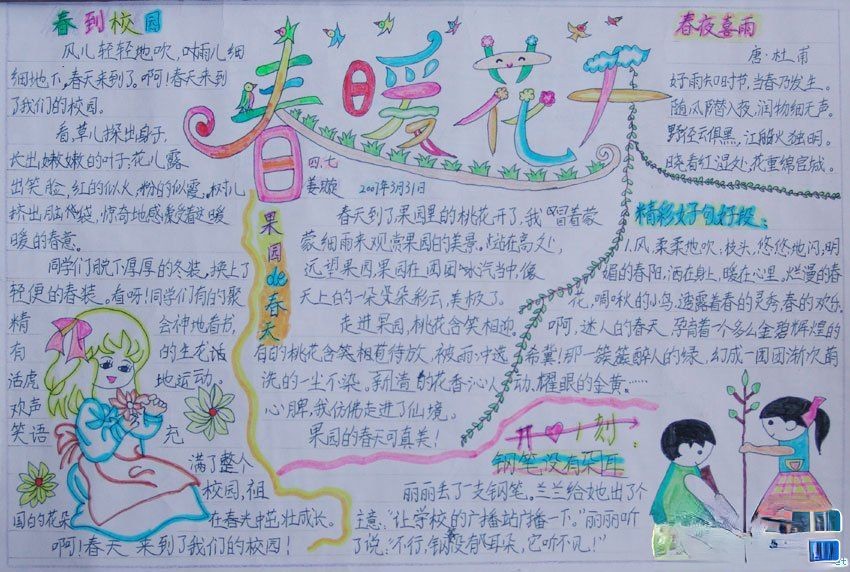 春到校园
风儿轻轻地吹,雨儿细
细地下,春天来到了。啊!春天来到
了我们的校园。
看,草儿探出身子,
长出嫩嫩的叶子;花儿露
出笑脸,红的似火,粉的似霞。树儿
挤出脑袋,惊奇地感受着这暖
暖的春意。
同学们脱下厚厚的冬装,换上了
轻便的春装。看呀!同学们有的聚
精会神地看书,
有的生龙活
虎地运动。
欢声
笑语充
满了整个
校园,祖
国的花朵在春光中茁壮成长。
啊!春天来到了我们的校园!
春暖花开
四.七
姜璇
2007年3月31日
果园de春天
春天到了果园里的桃花开了,我冒着蒙
蒙细雨来观赏果园的美景。站在高处,
远望果园,果园在团团水汽当中,像
天上的一朵朵彩云,美极了。
走进果园,桃花含笑相迎。
有的桃花含笑相苞待放,被雨冲
洗的一尘不染。新造的花香沁人
心脾,我仿佛走进了仙境。
果园的春天可真美!
春夜喜雨
唐·杜甫
好雨知时节,当春乃发生。
随风潜入夜,润物细无声。
野径云俱黑,江船火独明。
晓看红湿处,花重锦官城。
精彩好句好段:
1.风,柔柔地吹,枝头,悠悠地闪;明
媚的春阳,洒在身上,暖在心里。烂漫的春
花,啁啾的小鸟,透露着春的灵秀,春的欢欣。
啊,迷人的春天,孕育着一个多么金碧辉煌的
希冀!那一簇簇醉人的绿,幻成一团团渐次萌
动,耀眼的金黄。……
开心一刻:
钢笔没有耳朵
丽丽丢了一支钢笔。兰兰给她出了个
主意:“让学校的广播站广播一下。”丽丽听
了说:“不行,钢笔没有耳朵,它听不见!”